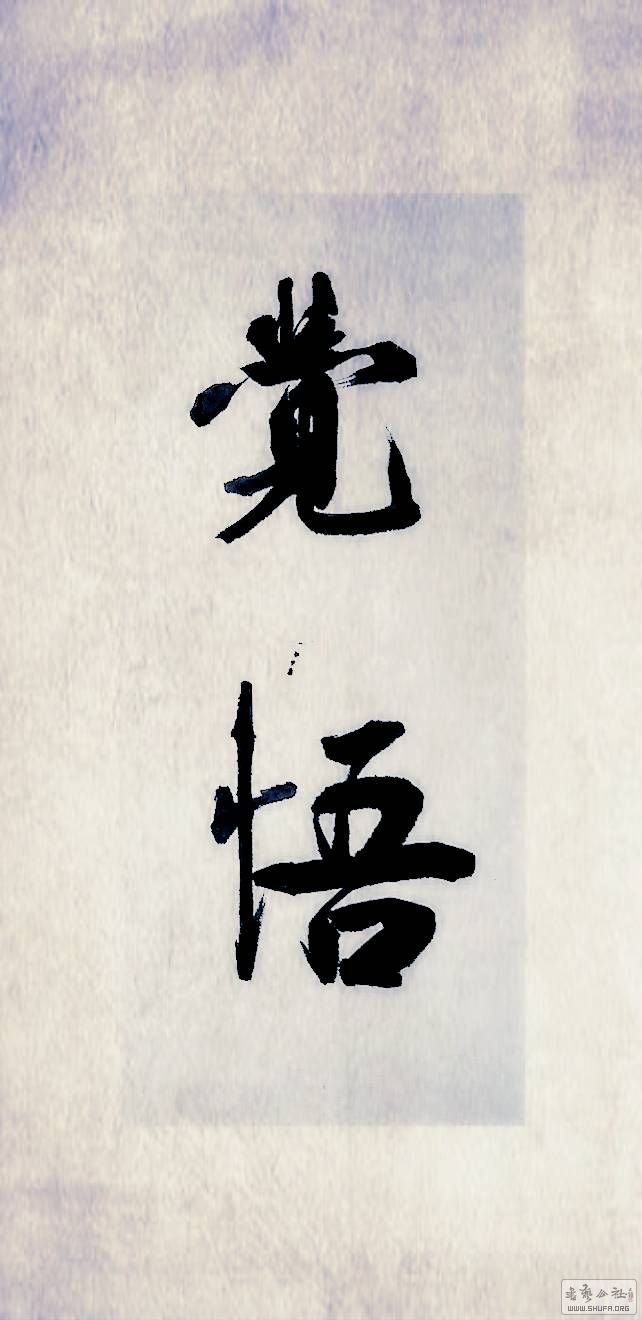 覺
悟
書藝公社
WWW.SHUFA.ORG